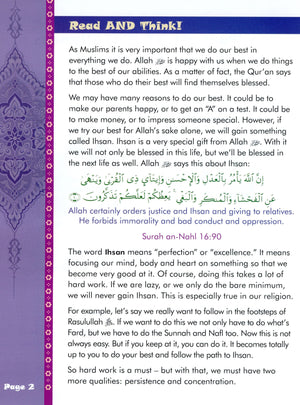 Read AND Think!
As Muslims it is very important that we do our best in
everything we do. Allah ﷻ is happy with us when we do things
to the best of our abilities. As a matter of fact, the Qur'an says
that those who do their best will find themselves blessed.
We may have many reasons to do our best. It could be to
make our parents happy, or to get an "A" on a test. It could be
to make money, or to impress someone special. However, if
we try our best for Allah's sake alone, we will gain something
called Ihsan. Ihsan is a very special gift from Allah ﷻ. With it
we will not only be blessed in this life, but we'll be blessed in
the next life as well. Allah ﷻ says this about Ihsan:
إِنَّ اللَّهَ يَأْمُرُ بِالْعَدْلِ وَالْإِحْسَنِ وَإِيتَآئِ ذِى الْقُرْبَى وَيَنْهَى
عَنِ الْفَحْشَآءِ وَالْمُنكَرِ وَالْبَغْىِ يَعِظُكُمْ لَعَلَّكُمْ تَذَكَّرُونَ
Allah certainly orders justice and Ihsan and giving to relatives.
He forbids immorality and bad conduct and oppression.
Surah an-Nahl 16:90
The word Ihsan means "perfection" or "excellence." It means
focusing our mind, body and heart on something so that we
become very good at it. Of course, doing this takes a lot of
hard work. If we are lazy, or we only do the bare minimum,
we will never gain Ihsan. This is especially true in our religion.
For example, let's say we really want to follow in the footsteps of
Rasulullah ﷺ. If we want to do this we not only have to do what's
Fard, but we have to do the Sunnah and Nafl too. Now this is not
always easy. But if you keep at it, you can do it. It becomes totally
up to you to do your best and follow the path to Ihsan.
So hard work is a must – but with that, we must have two
more qualities: persistence and concentration.
Page 2